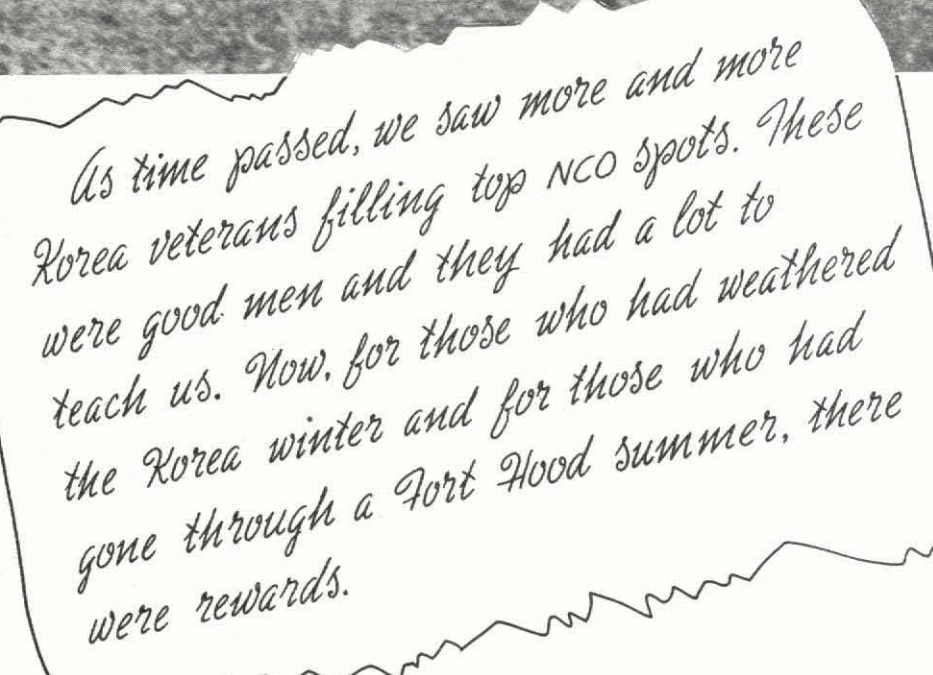 As time passed, we saw more and more
Korea veterans filling top NCO spots. These
were good men and they had a lot to
teach us. Now, for those who had weathered
the Korea winter and for those who had
gone through a Fort Hood summer, there
were rewards.